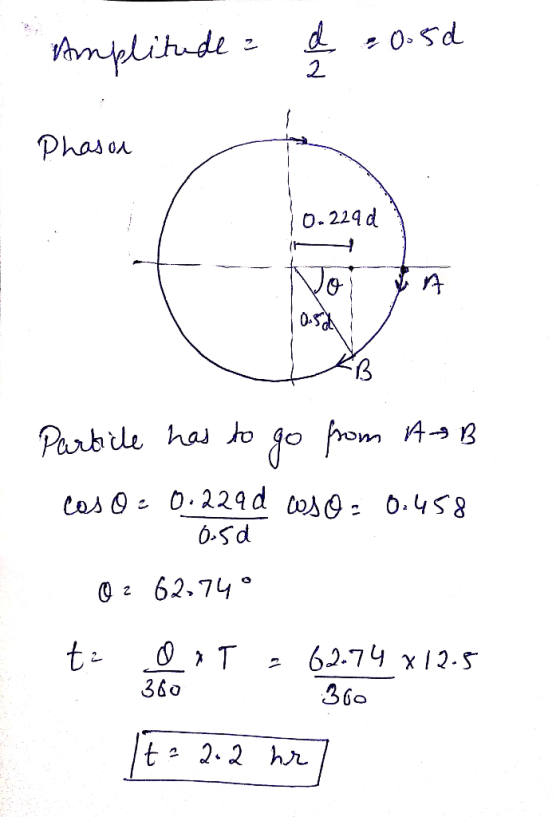 Amplitude = d/2 = 0.5d
Phasor
0.229d
θ
A
0.5d
B
Particle has to go from A → B
cos θ = 0.229d/0.5d cos θ = 0.458
θ = 62.74°
t = θ/360 × T = 62.74 × 12.5/360
t = 2.2 hr